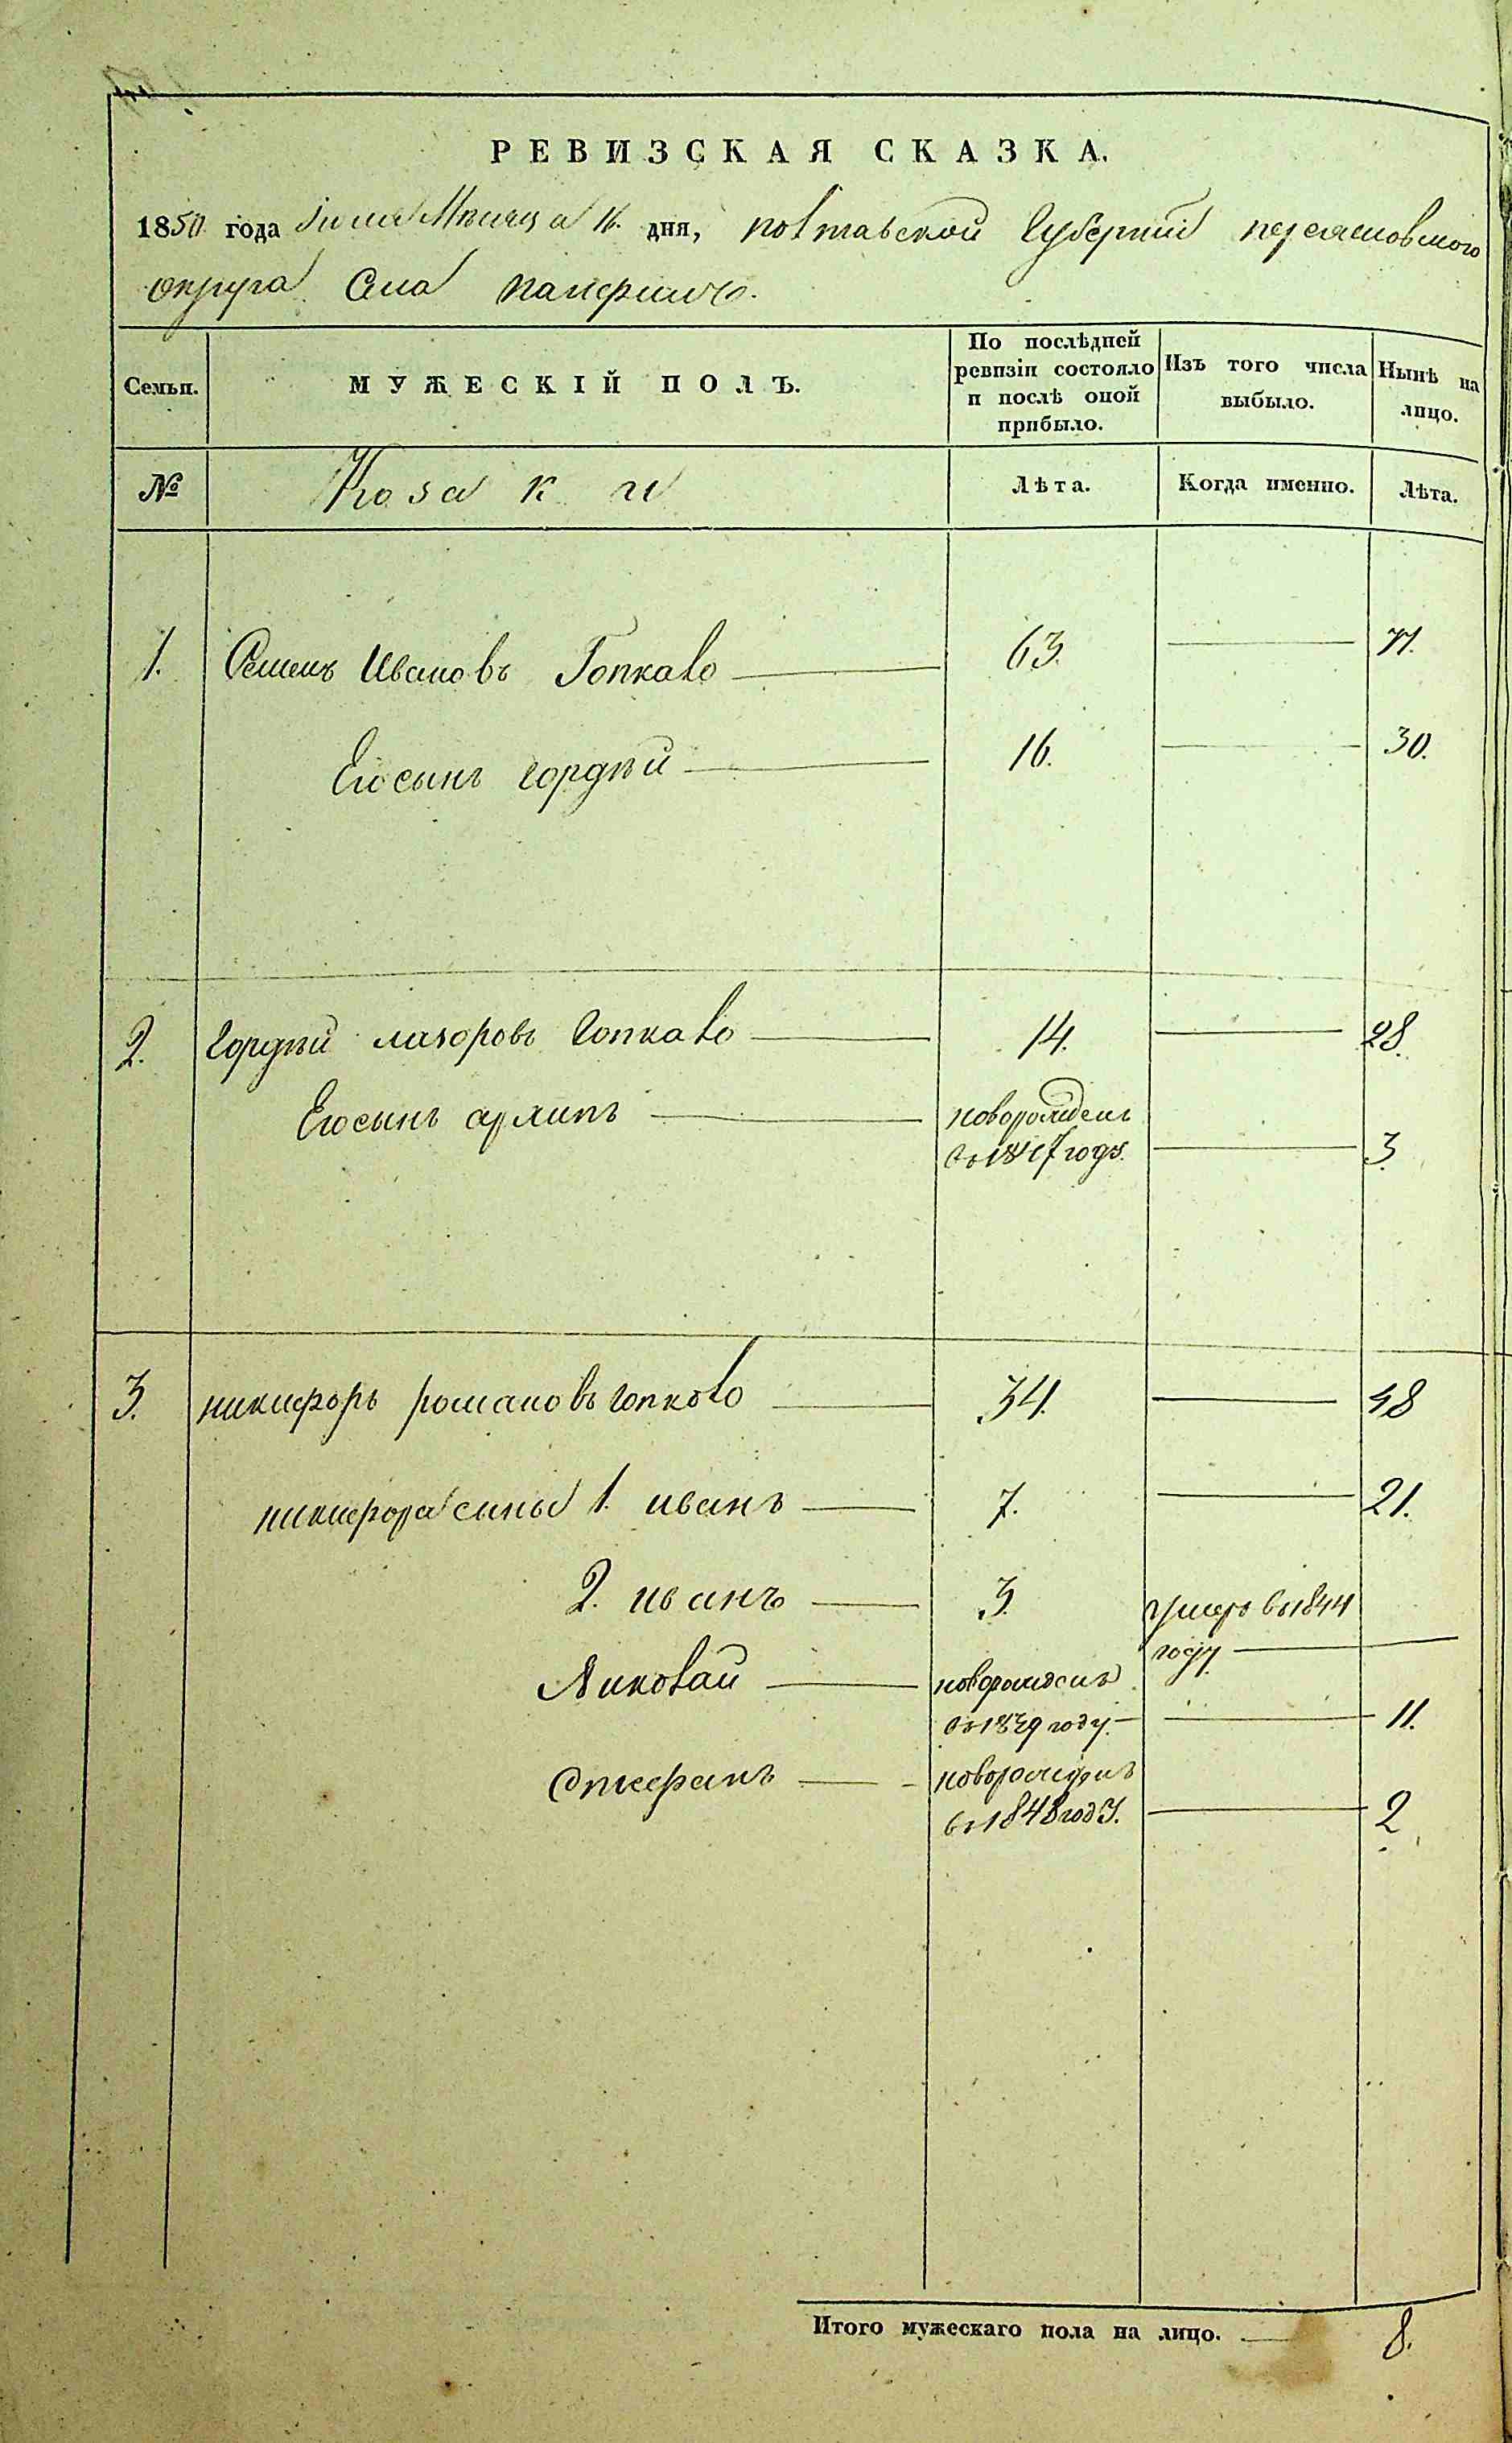 РЕВИЗСКАЯ СКАЗКА.
1850 года Іюля Мѣсяца 16. дня, полтавской Губерніи переясловского
округа Села
Семьи.
МУЖЕСКІЙ ПОЛЪ.
По послѣдней
ревизіи состояло
и послѣ оной
прибыло.
Изъ того числа
выбыло.
Нынѣ на
лицо.
№
Козаки
Лѣта.
Когда именно.
Лѣта.
1. Семенъ Ивановъ Гопкало 63. 77.
Егосынъ гордѣй 16. 30.
2. гордѣй лазоровъ гопкало 14. 28.
Егосынъ архипъ новорожденъ
въ1847году. 3
3. никифоръ романовъ гопкало 34. 48
никифора сины 1. иванъ 7. 21.
2. иванъ 3. умеръ въ1844
году
Николай новорожденъ
въ1839 году. 11.
Стефанъ новорожденъ
въ1848году. 2
Итого мужескаго пола на лицо. 8.